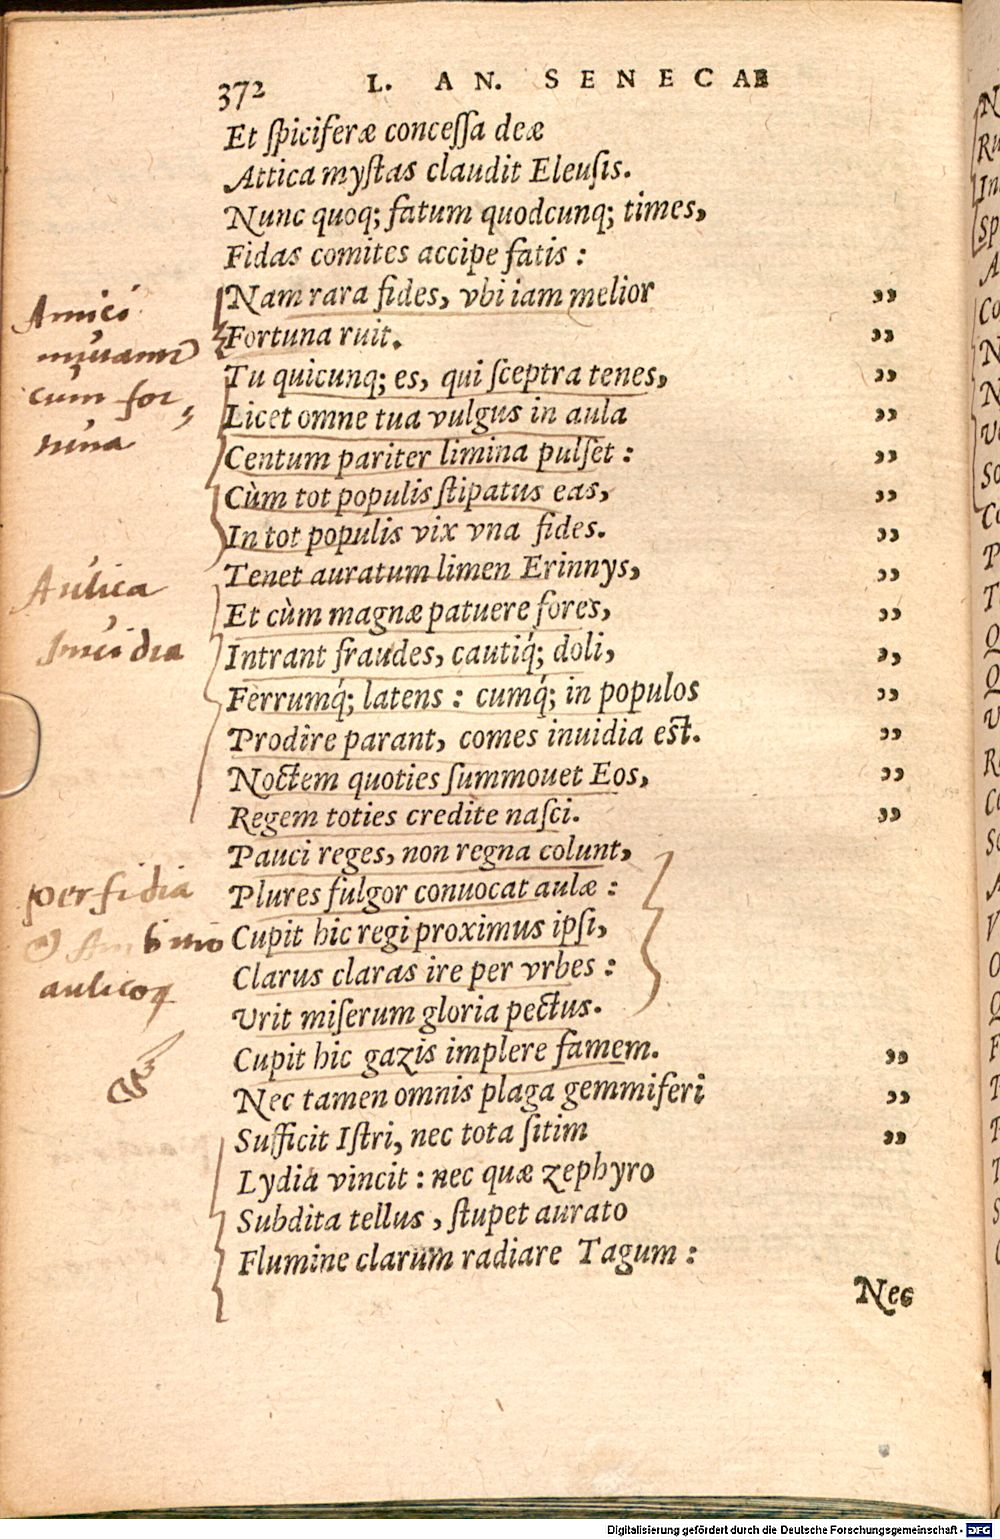 372 L. AN. SENECAE
Et ſpiciferæ conceſſa deæ
Attica myſtas claudit Eleuſis.
Nunc quoq; fatum quodcunq; times,
Fidas comites accipe fatis :
Nam rara fides, vbi iam melior „
Fortuna ruit. „
Tu quicunq; es, qui ſceptra tenes, „
Licet omne tua vulgus in aula „
Centum pariter limina pulſet : „
Cùm tot populis ſtipatus eas, „
In tot populis vix vna fides. „
Tenet auratum limen Erinnys, „
Et cùm magnæ patuere fores, „
Intrant fraudes, cautiq́; doli, „
Ferrumq́; latens : cumq́; in populos „
Prodire parant, comes inuidia eſt. „
Noctem quoties ſummouet Eos, „
Regem toties credite naſci. „
Pauci reges, non regna colunt,
Plures fulgor conuocat aulæ :
Cupit hic regi proximus ipſi,
Clarus claras ire per vrbes :
Vrit miſerum gloria pectus.
Cupit hic gazis implere famem. „
Nec tamen omnis plaga gemmiferi „
Sufficit Iſtri, nec tota ſitim „
Lydia vincit : nec quæ zephyro
Subdita tellus , ſtupet aurato
Flumine clarum radiare Tagum :
Nec
Amici
cum for
tuna
Aulica
Inuidia
perfidia
aulicoꝝ
Digitalisierung gefördert durch die Deutsche Forschungsgemeinschaft - DFG